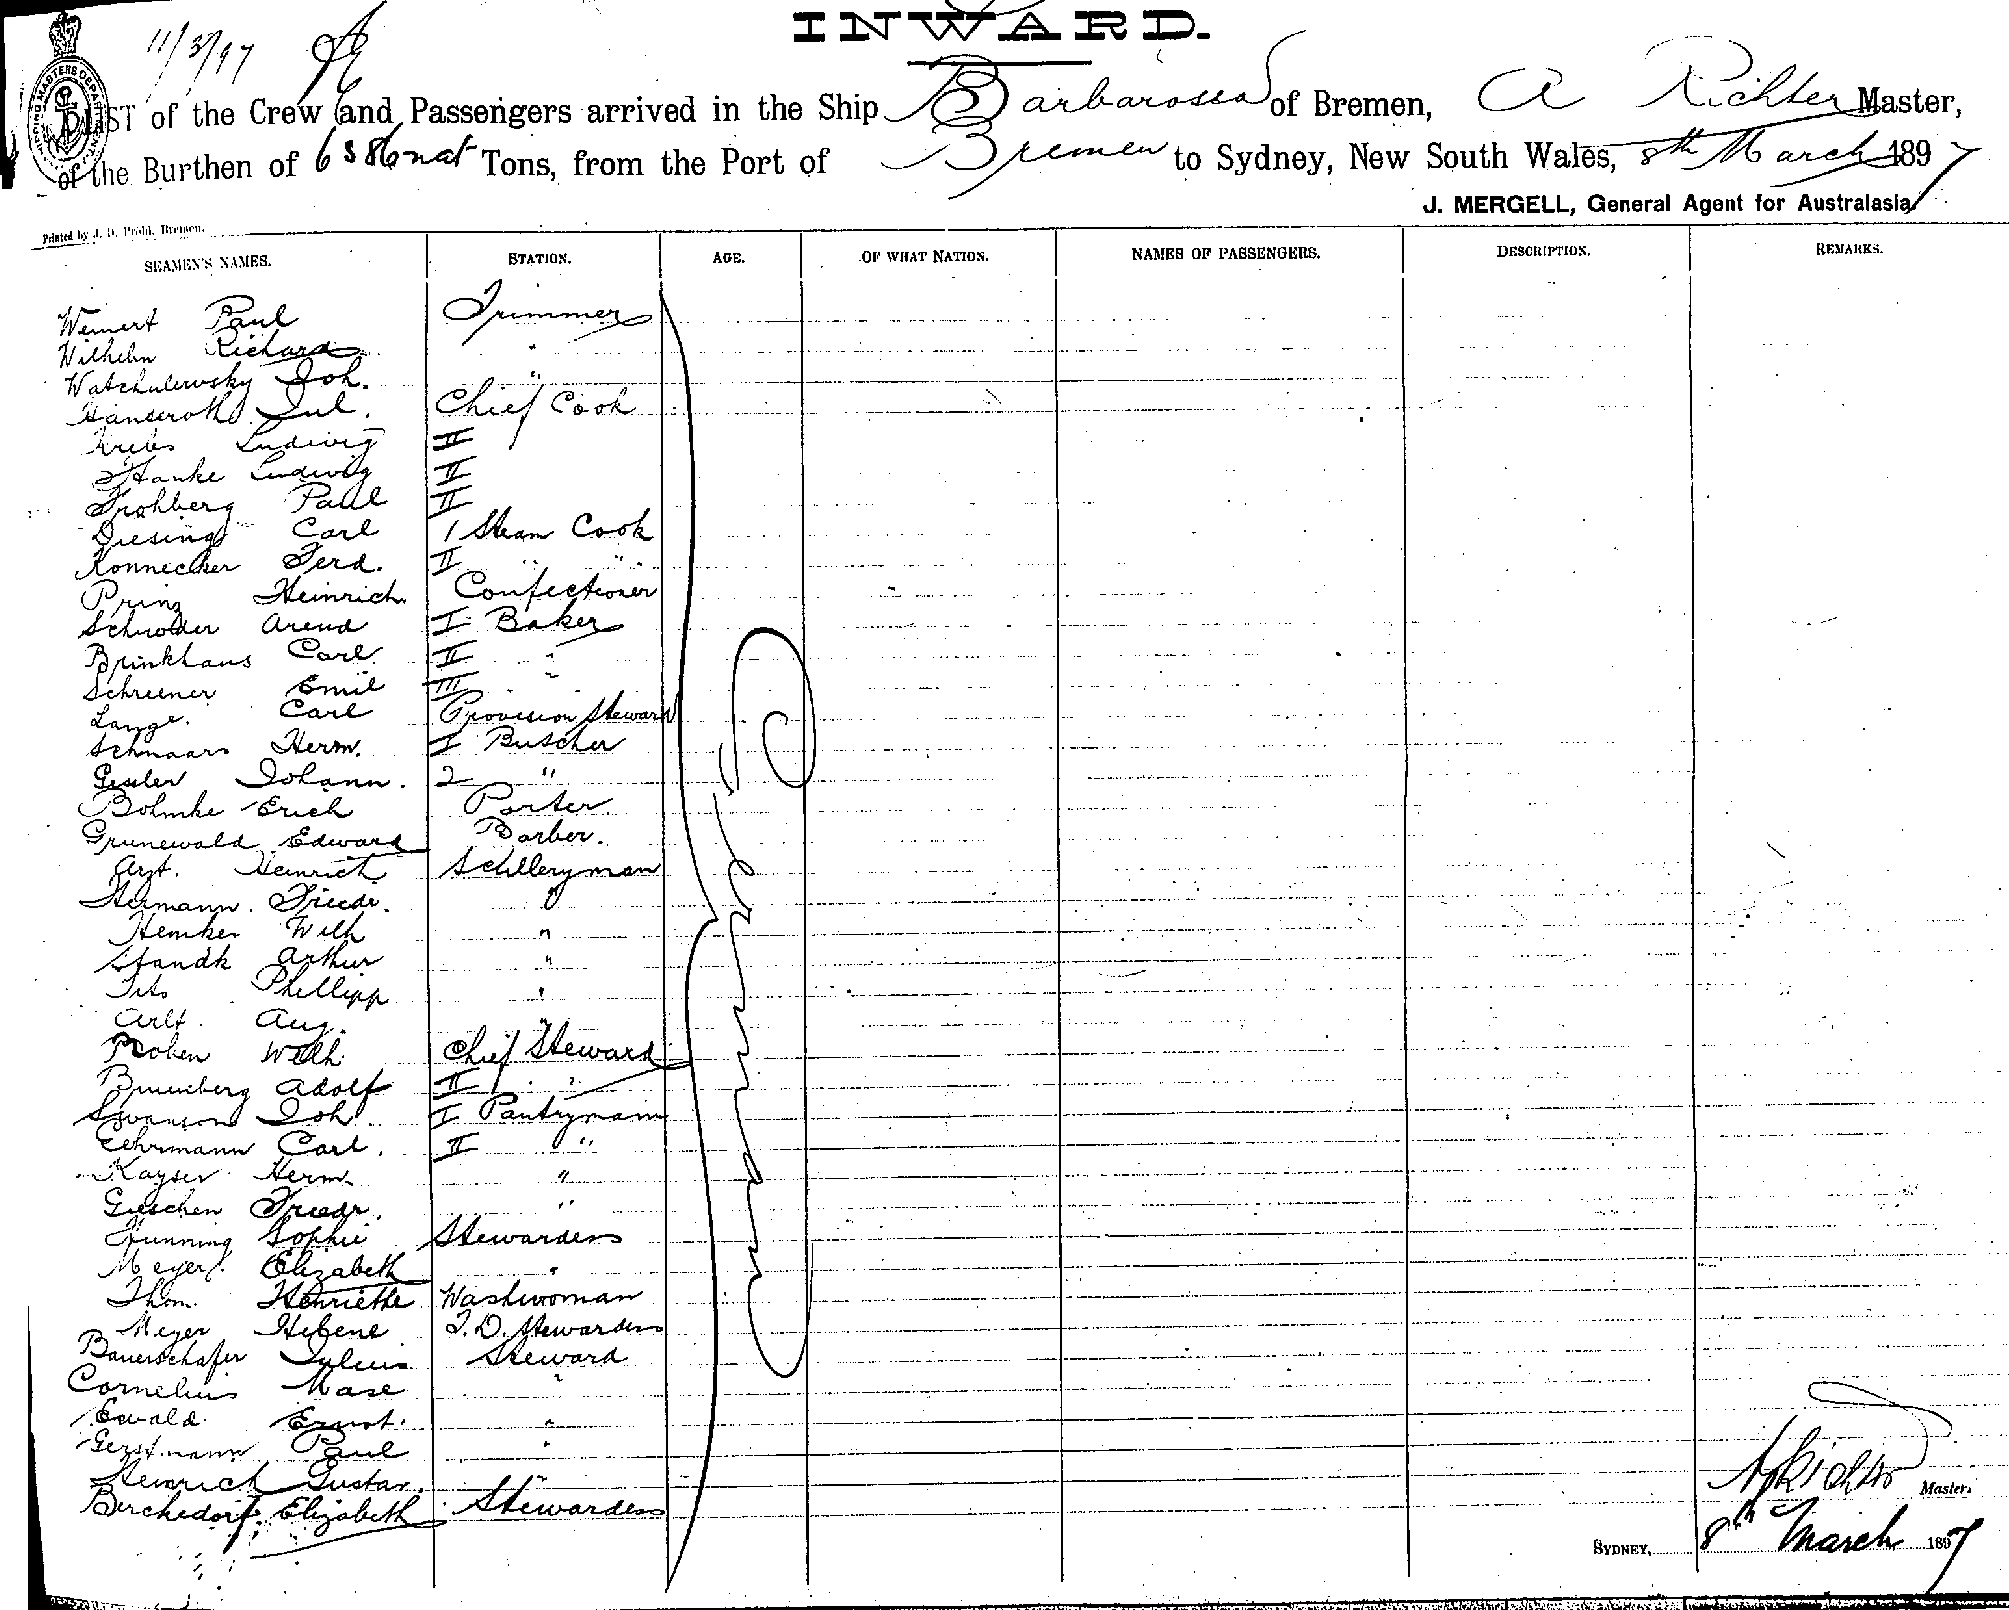 INWARD.
11/3/97
LIST of the Crew and Passengers arrived in the Ship Barbarossa of Bremen, A Richter Master,
of the Burthen of 6386 nat Tons, from the Port of Bremen to Sydney, New South Wales, 8th March 1897
J. MERGELL, General Agent for Australasia
Printed by J. D. Bremen.
SEAMEN'S NAMES. STATION. AGE. OF WHAT NATION. NAMES OF PASSENGERS. DESCRIPTION. REMARKS.
Weinert Paul Trimmer
Wilhelm Richard "
Watchulewsky Joh. "
Jul. Chief Cook
Krebs Ludwig II
Hanke Ludwig II
Frohberg Paul II
Diesing Carl 1 Steam Cook
Konnecker Ferd. II " "
Prinz Heinrich Confectioner
Schroder Arend I Baker
Brinkhaus Carl II "
Schreener Emil III "
Lange. Carl Provision Steward
Schnaars Herm. I Butcher
Gessler Johann. 2 "
Bohmke Erich Porter
Grunewald Edward Barber.
Arzt. Heinrich Schlleryman
Hermann. Friedr. "
Hemker Wilh "
Standk Arthur "
Tits Phillipp "
Arlt. Aug. "
Roben Wilh. Chief Steward
Adolf II "
Swanson Joh. I Pantrymann
Lehrmann Carl. II "
Kayser Herm. "
Gieschen Friedr. "
Hunning Sophie Stewardess
Meyer. Elizabeth "
Thom. Henriette Washwoman
Meyer Helene T. D. Stewardess
Bauerschafer Julius Steward
Cornelius Mase "
Ewald. Ernst. "
Gerstmann Paul "
Heinrich Gustav. "
Berchedorf. Elizabeth Stewardess
German
A Richter Master.
SYDNEY, 8th March 1897